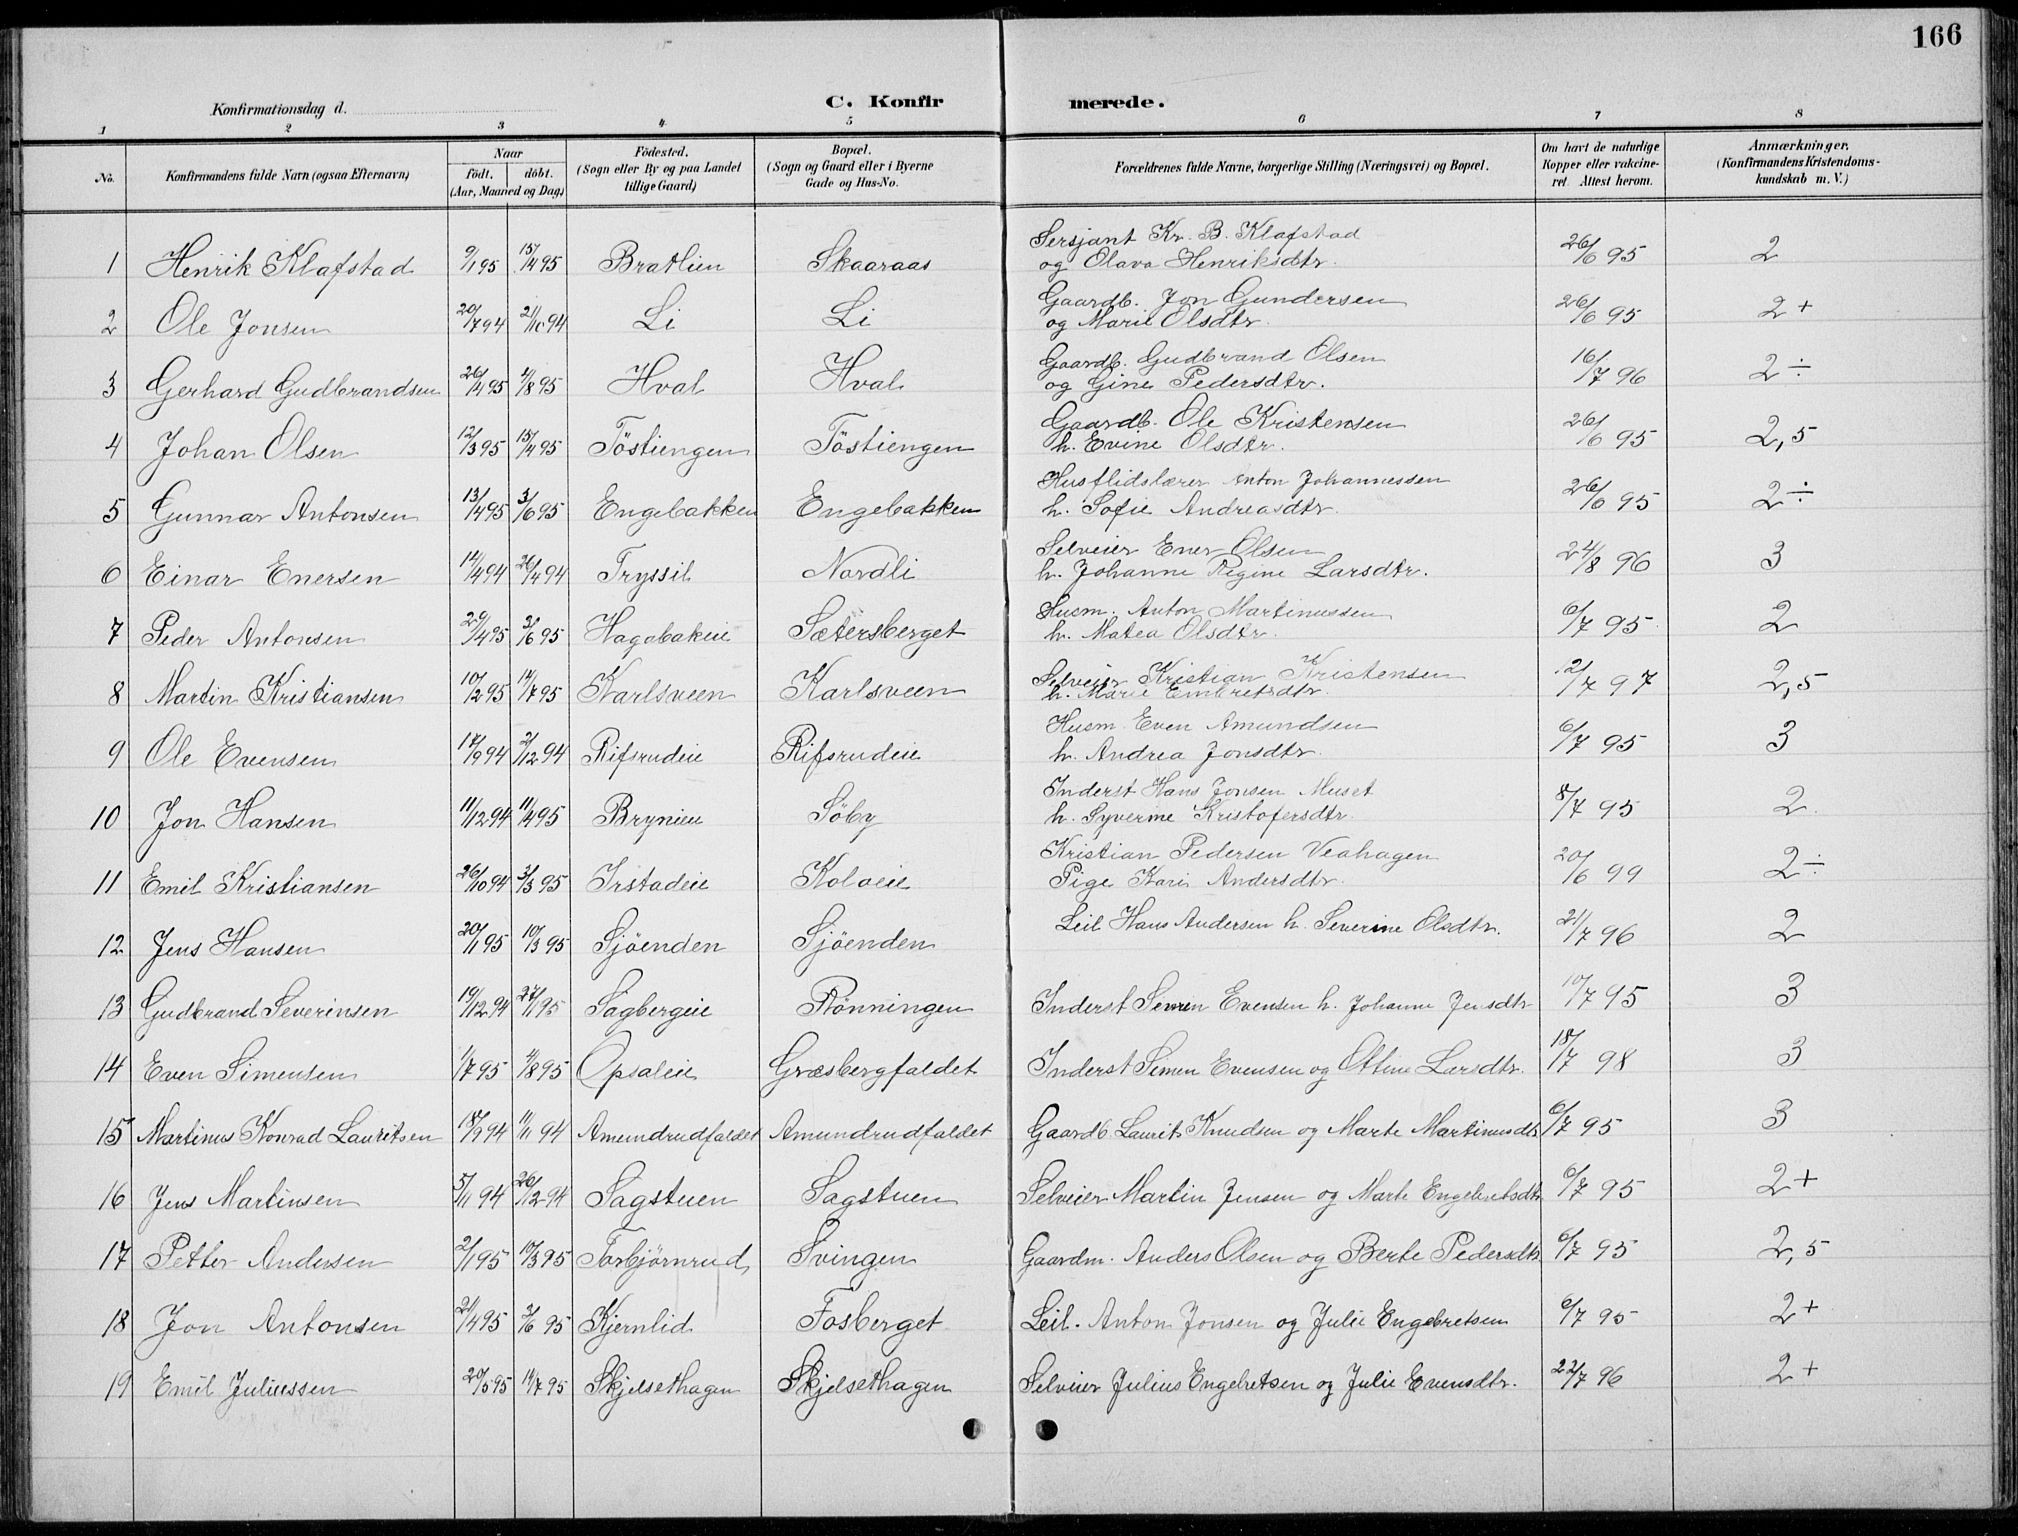 166
Konfirmationsdag d.
C. Konfirmerede.
1 2 3 4 5 6 7 8
No. Konfirmandens fulde Navn (ogsaa Efternavn) Naar født. døbt. (Aar, Maaned og Dag) Födested. (Sogn eller By og paa Landet tillige Gaard) Bopæl. (Sogn og Gaard eller i Byerne Gade og Hus-No. Forældrenes fulde Navne, borgerlige Stilling (Næringsvei) og Bopæl. Om havt de naturlige Kopper eller vakcineret. Attest herom. Anmærkninger. (Konfirmandens Kristendomskundskab m. V.)
1 Henrik Klafstad 9/1 95 15/4 95 Bratlien Skaaraas Sersjant Kr. B. Klafstad 26/6 95 2
og Olava Henriksdtr.
2 Ole Jonsen 20/7 94 21/10 94 Li Li Gaardb. Jon Gundersen 26/6 95 2+
og Marie Olsdtr.
3 Gerhard Gudbrandsen 26/4 95 4/8 95 Hval Hval Gaardb. Gudbrand Olsen 16/7 96 2÷
og Gine Pedersdtr.
4 Johan Olsen 12/3 95 15/4 95 Töstiengen Töstiengen Gaardb. Ole Kristensen 26/6 95 2,5
h. Evine Olsdtr.
5 Gunnar Antonsen 13/4 95 3/6 95 Engebakken Engebakken Husflidslærer Anton Johannessen 26/6 95 2÷
h. Sofie Andreasdtr.
6 Einar Enersen 14/4 94 26/4 94 Tryssil Nordli Selveier Ener Olsen 24/8 96 3
h. Johanne Regine Larsdtr.
7 Peder Antonsen 29/4 95 3/6 95 Hagabakeie Sætersberget Husm. Anton Martinussen 6/7 95 2
h. Matea Olsdtr.
8 Martin Kristiansen 10/2 95 14/7 95 Karlsveen Karlsveen Selveier Kristian Kristensen 2/7 97 2,5
h. Marie Embretsdtr.
9 Ole Evensen 17/9 94 2/12 94 Rifsrudeie Rifsrudeie Husm. Even Amundsen 6/7 95 3
h. Andrea Jonsdtr.
10 Jon Hansen 11/12 94 11/4 95 Brynieie Söby Inderst Hans Jonsen Muset 8/7 95 2.
h. Syverine Kristofersdtr.
11 Emil Kristiansen 26/10 94 3/3 95 Irstadeie Koloeie Kristian Pedersen Veahagen 20/6 99 2÷
Pige Kari Andersdtr.
12 Jens Hansen 20/1 95 10/3 95 Sjöenden Sjöenden Leil Hans Andersen h. Severine Olsdtr. 21/7 96 2
13 Gudbrand Severinsen 19/12 94 27/1 95 Sagbergeie Rönningen Inderst Severin Evensen h. Johanne Jensdtr 10/7 95 3
14 Even Simensen 1/7 95 4/8 95 Opsaleie Græsbergfaldet Inderst Simen Evensen og Oline Larsdtr. 18/7 98 3
15 Martinus Konrad Lauritsen 18/9 94 11/11 94 Amundrudfaldet Amundrudfaldet Gaardb. Laurits Knudsen og Marte Martinusdtr 6/7 95 3
16 Jens Martinsen 5/11 94 26/12 94 Sagstuen Sagstuen Selveier Martin Jensen og Marte Engebretsdtr 6/7 95 2+
17 Petter Andersen 2/1 95 10/3 95 Torbjörnrud Svingen Gaardm. Anders Olsen og Berte Pedersdtr 6/7 95 2,5
18 Jon Antonsen 21/4 95 3/6 95 Kjernlid Fosberget Leil. Anton Jonsen og Julie Engebretsen 6/7 95 2+
19 Emil Juliussen 20/5 95 14/7 95 Skjelsethagen Skjelsethagen Selveier Julius Engebretsen og Julie Evensdtr. 22/7 96 2+